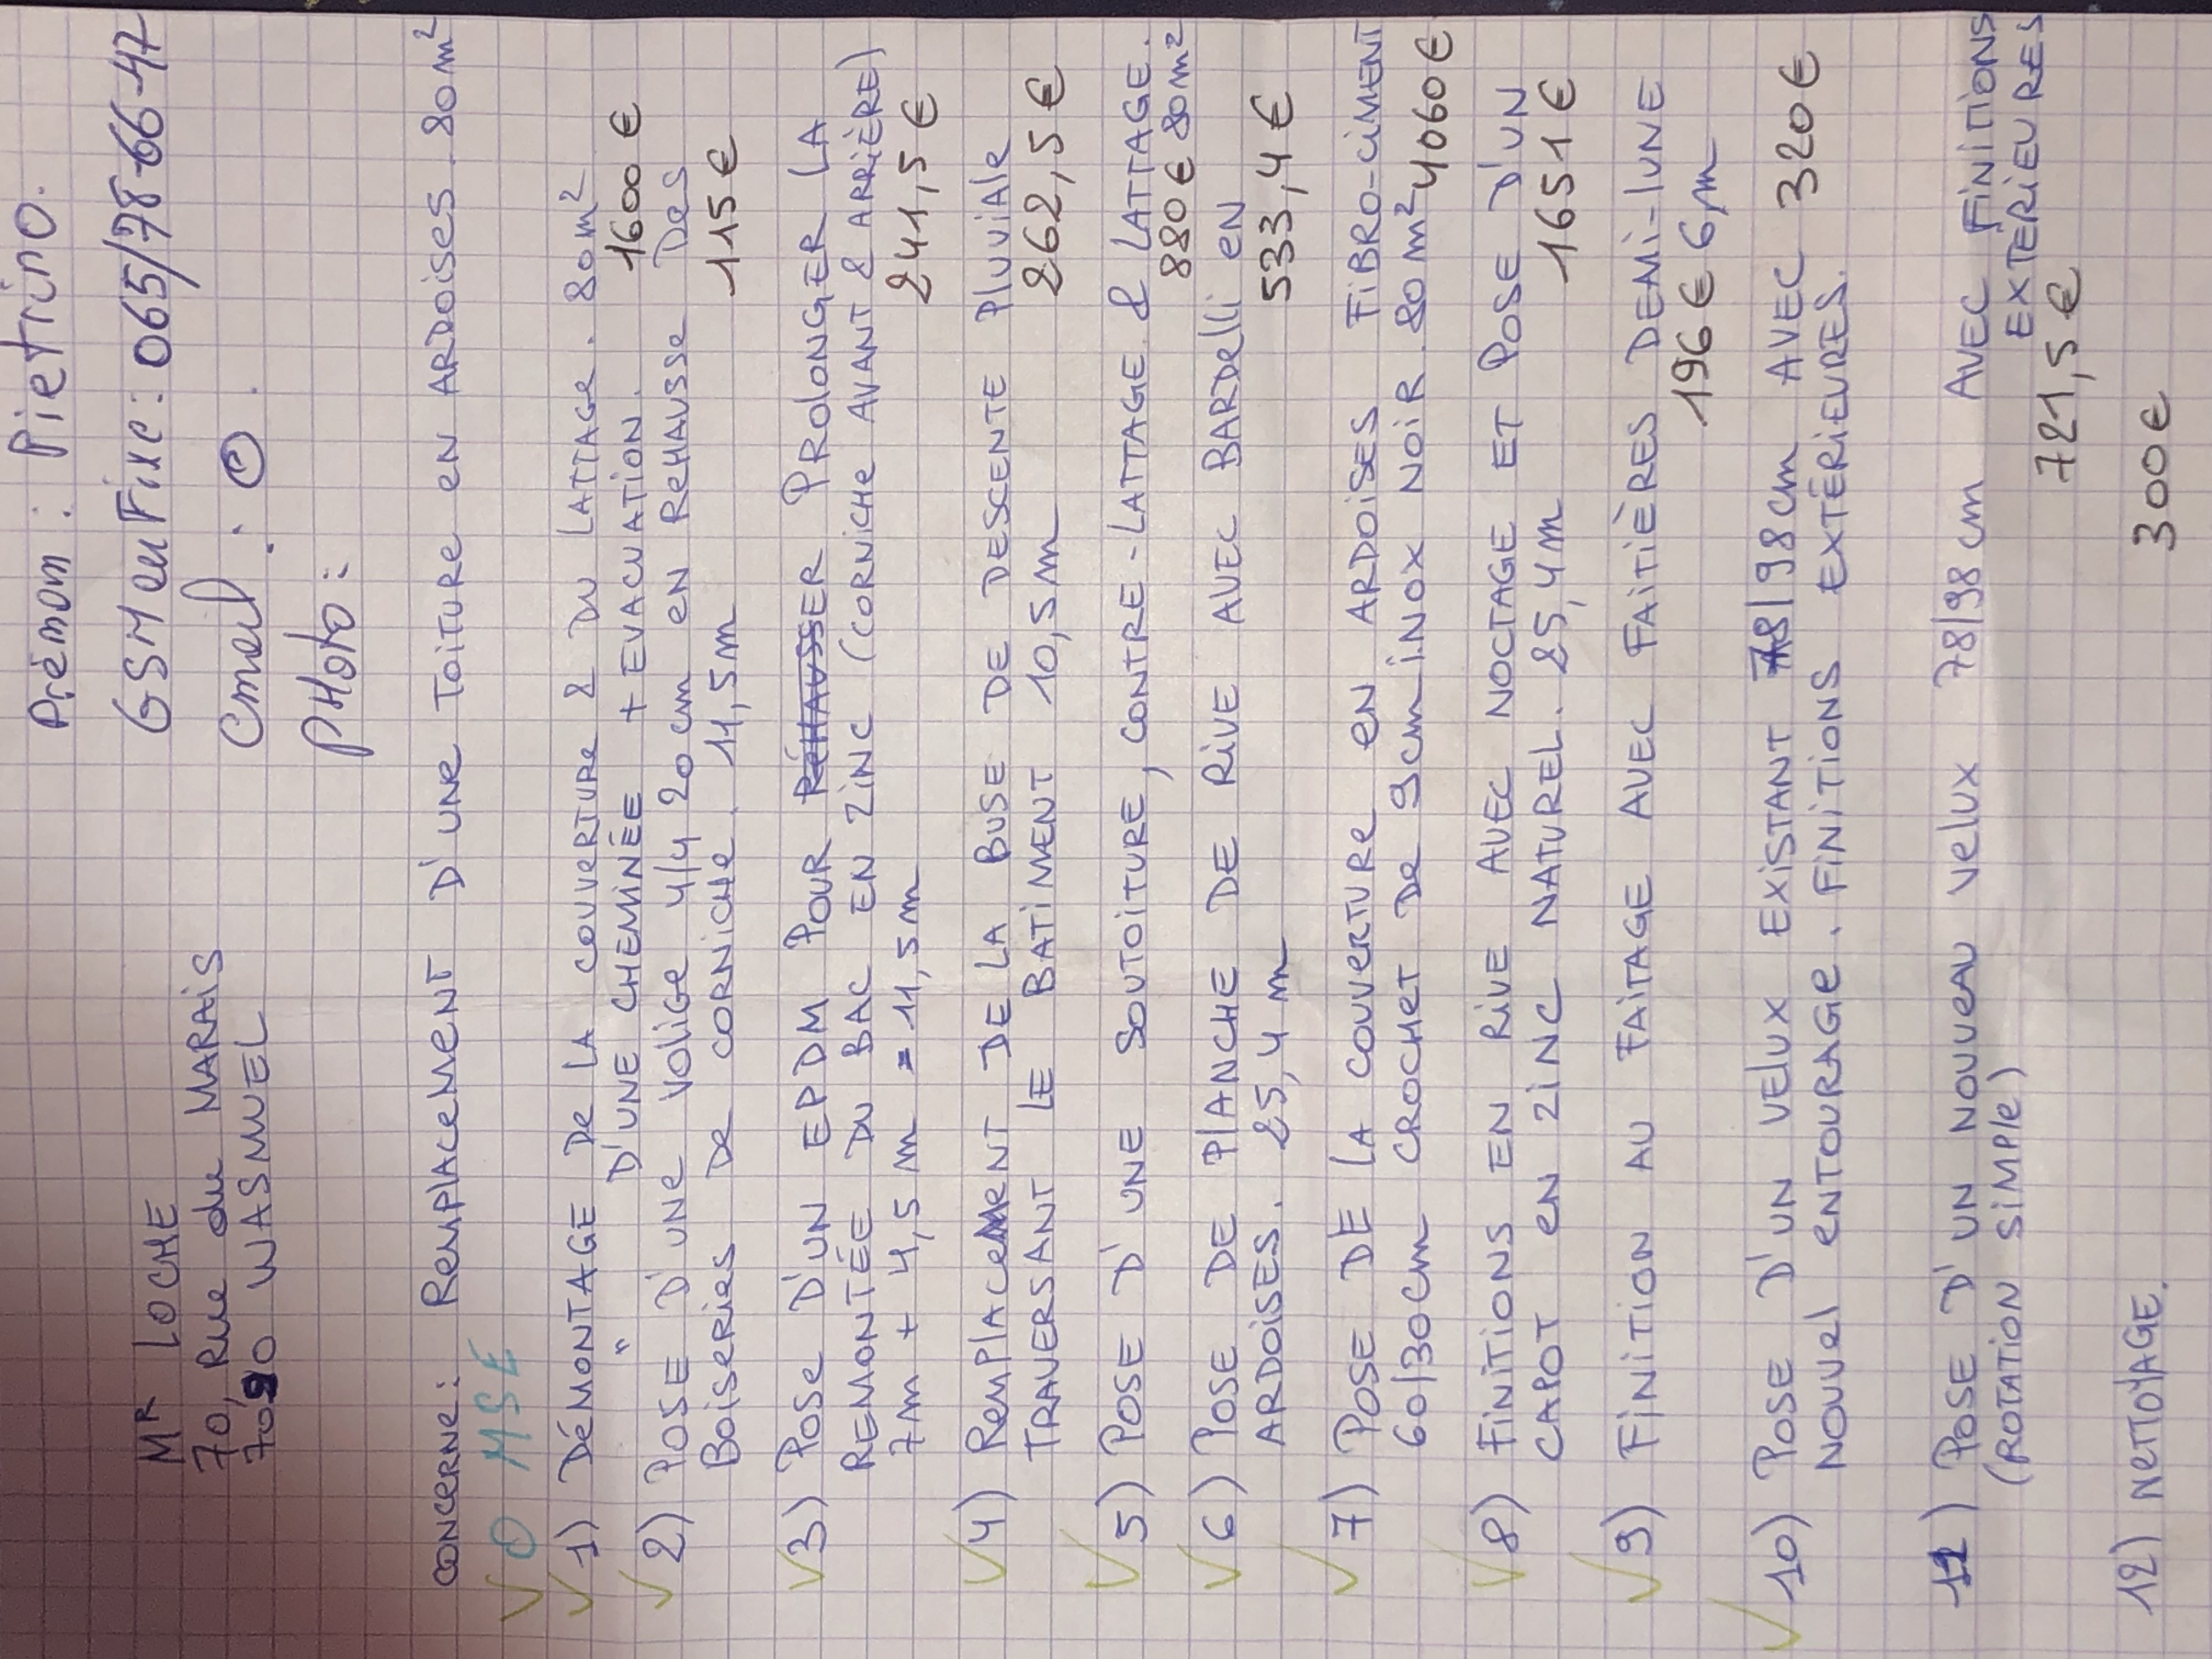 Prénom : Pietrino.
MR LOCHE
GSM ou Fixe : 065/78-66-47
70, Rue du MARAIS
email :
7020 WASMUEL
PHoto :
CONCERNE : REMPLACEMENT D'UNE TOITURE EN ARDOISES. 80m²
0 MSE
1) DÉMONTAGE De LA COUVERTURE & DU LATTAGE. 80m²
" D'UNE CHEMINÉE + EVACUATION. 1600 €
2) POSE D'UNE VOLIGE 4/4 20cm EN REHAUSSE Des
BOISERIES DE CORNICHE. 11,5m 115 €
3) POSE D'UN EPDM POUR REHAUSSER PROLONGER LA
REMONTÉE DU BAC EN ZINC (CORNICHE AVANT & ARRIÈRE)
7m + 4,5 m = 11,5m 241,5 €
4) REMPLACEMENT DE LA BUSE DE DESCENTE PLUVIALE
TRAVERSANT LE BATIMENT 10,5m 262,5 €
5) POSE D'UNE SOUTOITURE, CONTRE-LATTAGE & LATTAGE.
880 € 80m²
6) POSE DE PLANCHE DE RIVE AVEC BARDELLI EN
ARDOISES. 25,4 m 533,4 €
7) POSE DE LA COUVERTURE EN ARDOISES FIBRO-CIMENT
60/30cm CROCHET De 9cm INOX NOIR. 80m² 4060 €
8) FINITIONS EN RIVE AVEC NOCTAGE ET POSE D'UN
CAPOT EN ZINC NATUREL. 25,4m 1651 €
9) FINITION AU FAITAGE AVEC FAITIÈRES DEMI-LUNE
196 € 6m
10) POSE D'UN VELUX EXISTANT 78/98cm AVEC 320 €
NOUVEL ENTOURAGE. FINITIONS EXTÉRIEURES.
11) POSE D'UN NOUVEAU VELUX 78/98cm AVEC FINITIONS
(ROTATION SIMPLE) EXTERIEURES
721,5 €
12) NETTOYAGE. 300 €